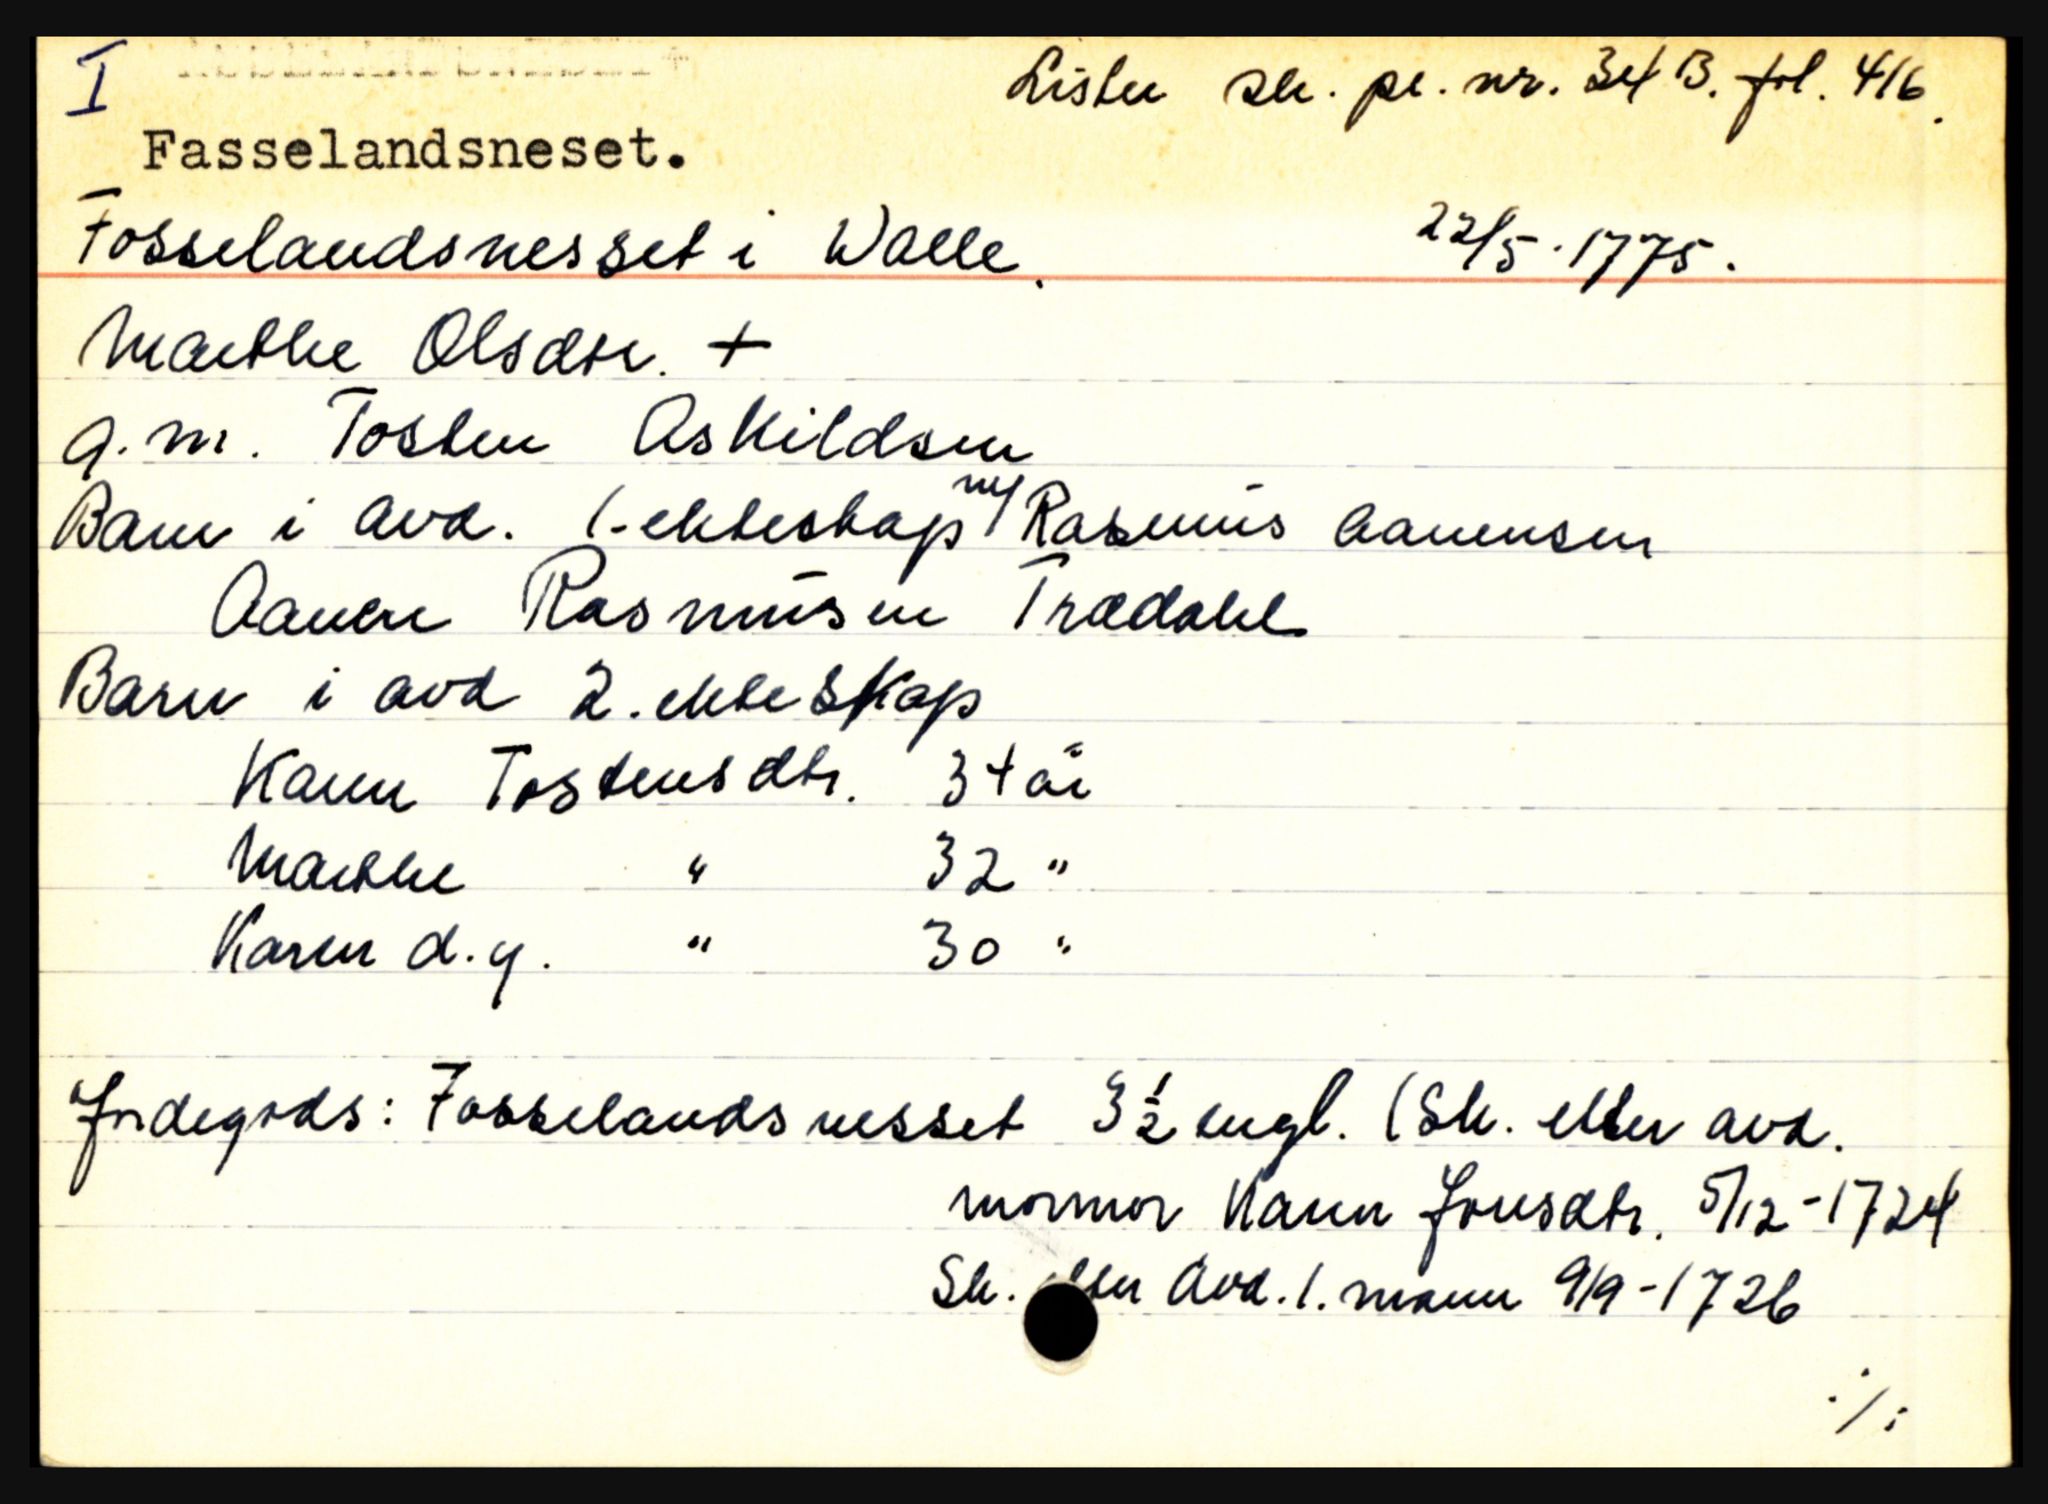 I
Lister sk. pr. nr. 34 B. fol. 416.
Fasselandsneset.
Fosselandsnesset i Walle. 22/5-1775.
Marthe Olsdtr. +
g.m. Tosten Askildsen
Barn i avd. 1. ekteskap m/ Rasmus Aanensen
Aanen Rasmusen Trædahl
Barn i avd 2. ekteskap
Karen Tostensdtr. 34 år
Marthe " 32 "
Karen d.y. " 30 "
Jordegods: Fosselandsnesset 3 1/2 engl. (Sk. etter avd.
mormor Karen Jonsdtr. 5/12-1724
Sk. etter Avd. 1. mann 9/9-1726
./.